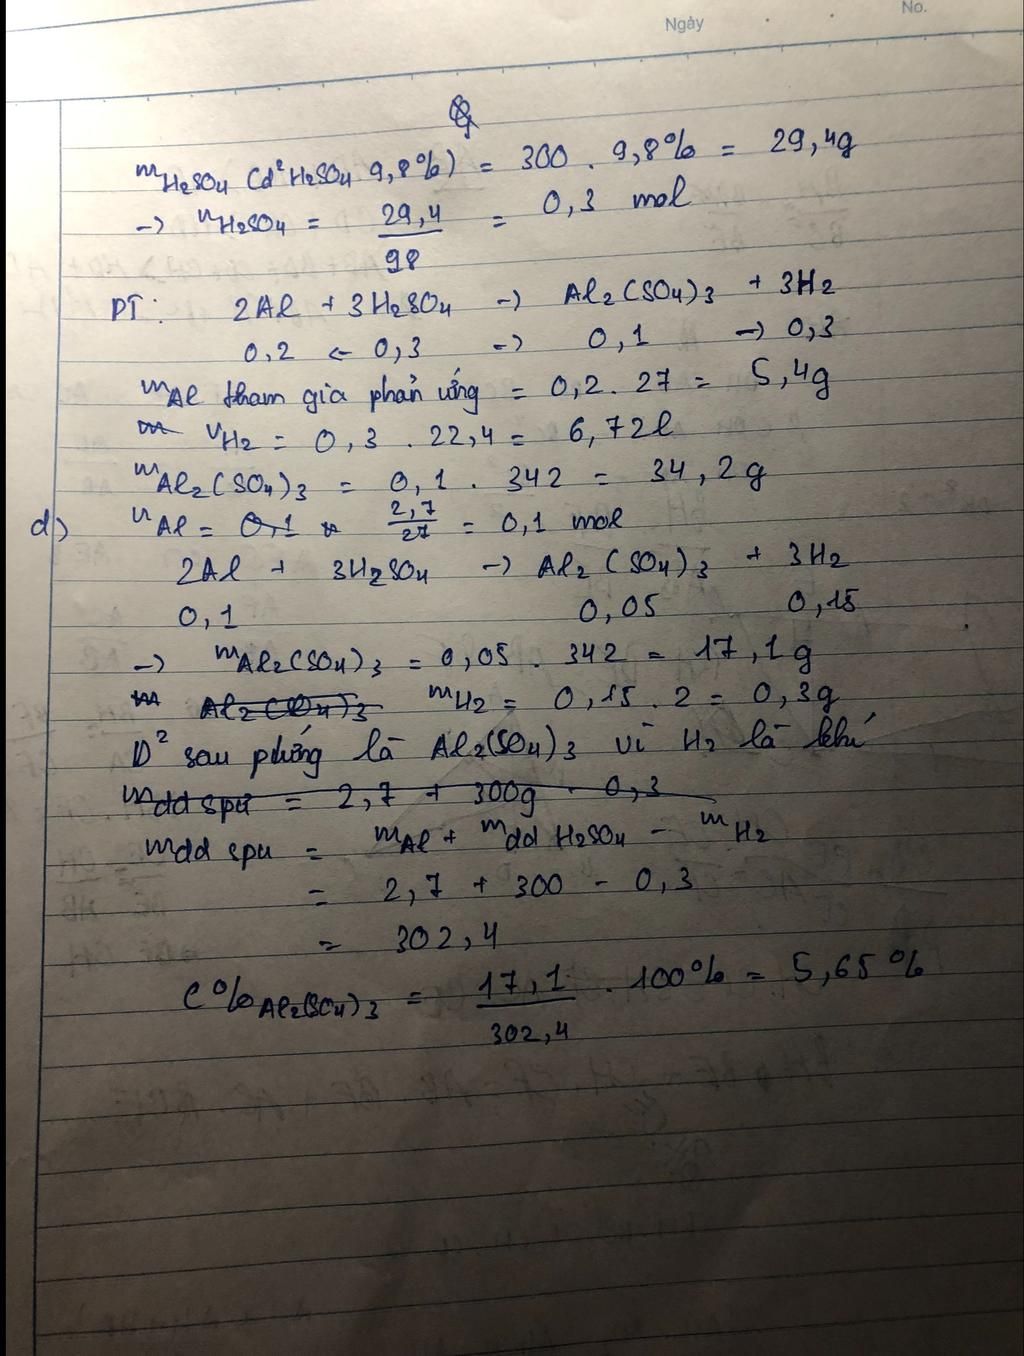 Ngày
No.
mH2SO4 (d²H2SO4 9,8%) = 300 . 9,8% = 29,4g
-> nH2SO4 = 29,4/98 = 0,3 mol
PT: 2Al + 3H2SO4 -> Al2(SO4)3 + 3H2
0,2 <- 0,3 -> 0,1 -> 0,3
mAl tham gia phản ứng = 0,2 . 27 = 5,4g
m VH2 = 0,3 . 22,4 = 6,72l
mAl2(SO4)3 = 0,1 . 342 = 34,2g
d) nAl = 0,1 2,7/27 = 0,1 mol
2Al + 3H2SO4 -> Al2(SO4)3 + 3H2
0,1 0,05 0,15
-> mAl2(SO4)3 = 0,05 . 342 = 17,1g
m Al2(SO4)3 mH2 = 0,15 . 2 = 0,3g
D² sau phứng là Al2(SO4)3 vì H2 là khí
mdd spứ = 2,7 + 300g - 0,3
mdd spu = mAl + mdd H2SO4 - mH2
= 2,7 + 300 - 0,3
= 302,4
C%Al2(SO4)3 = 17,1/302,4 . 100% = 5,65%